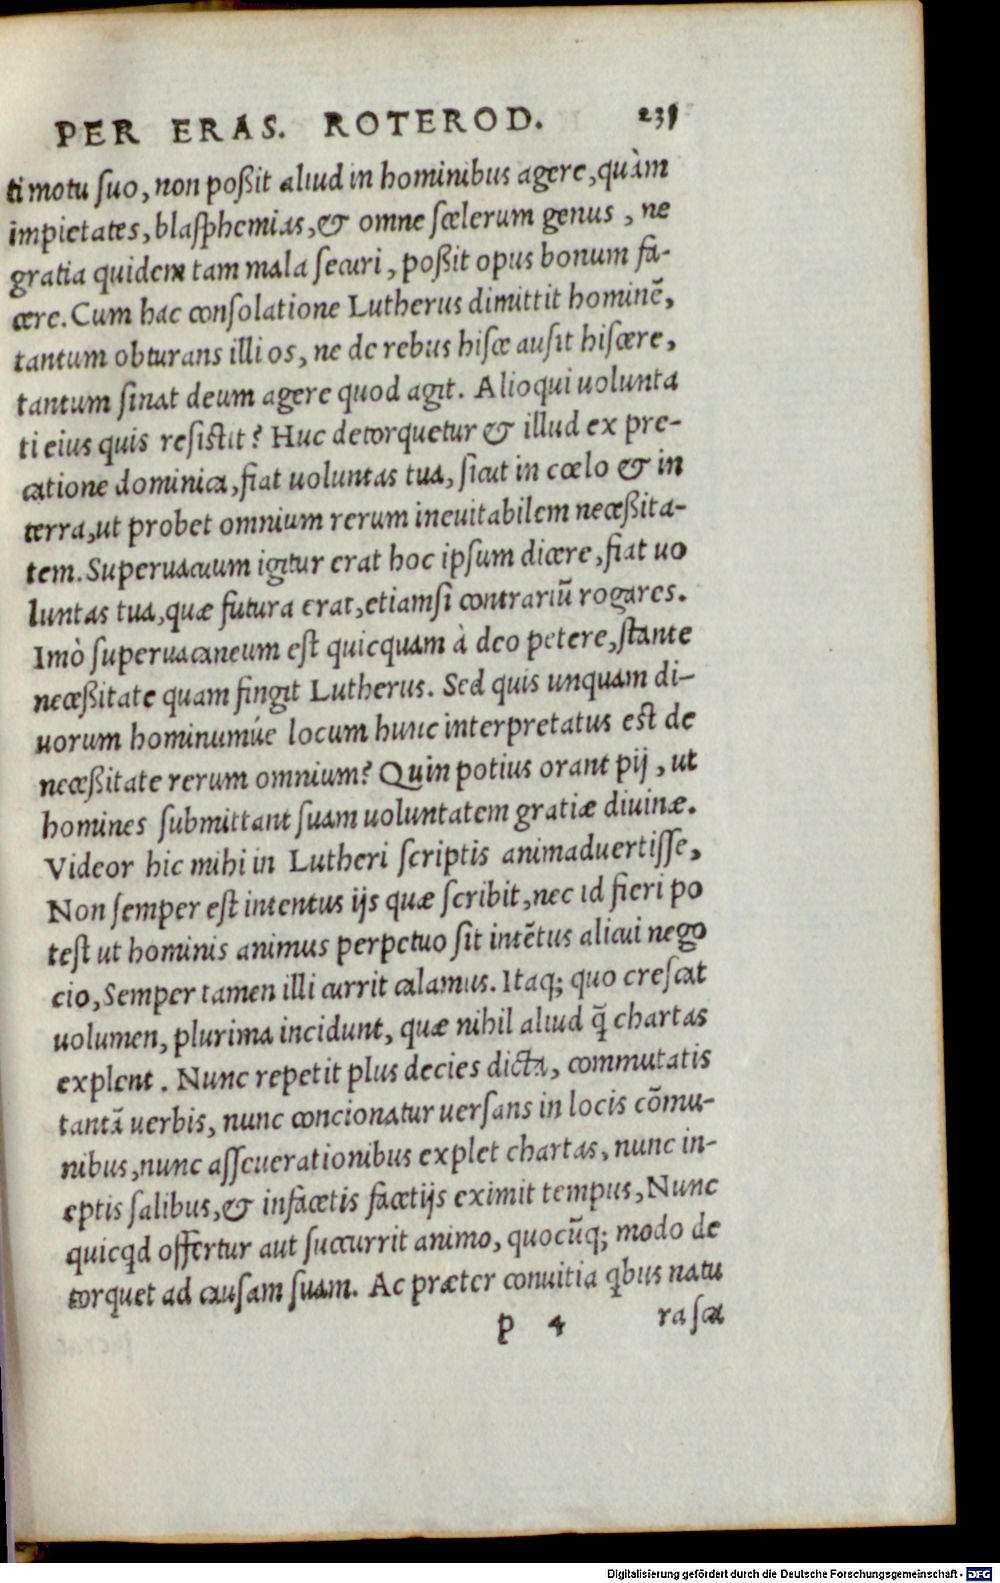 PER ERAS. ROTEROD. 231
ti motu ſuo, non poßit aliud in hominibus agere, quàm
impietates, blaſphemias, & omne ſcelerum genus, ne
gratia quidem tam mala ſecuri, poßit opus bonum fa-
cere. Cum hac conſolatione Lutherus dimittit hominẽ,
tantum obturans illi os, ne de rebus hiſce auſit hiſcere,
tantum ſinat deum agere quod agit. Alioqui uolunta
ti eius quis reſiſtit? Huc detorquetur & illud ex pre-
catione dominica, fiat uoluntas tua, ſicut in cœlo & in
terra, ut probet omnium rerum ineuitabilem neceßita-
tem. Superuacuum igitur erat hoc ipſum dicere, fiat uo
luntas tua, quæ futura erat, etiamſi contrariũ rogares.
Imò ſuperuacaneum eſt quicquam à deo petere, ſtante
neceßitate quam fingit Lutherus. Sed quis unquam di-
uorum hominumúe locum hunc interpretatus eſt de
neceßitate rerum omnium? Quin potius orant pij, ut
homines ſubmittant ſuam uoluntatem gratiæ diuinæ.
Videor hic mihi in Lutheri ſcriptis animaduertiſſe,
Non ſemper eſt intentus ijs quæ ſcribit, nec id fieri po
teſt ut hominis animus perpetuo ſit intẽtus alicui nego
cio, Semper tamen illi currit calamus. Itaq; quo creſcat
uolumen, plurima incidunt, quæ nihil aliud q̃ chartas
explent. Nunc repetit plus decies dicta, commutatis
tantũ uerbis, nunc concionatur uerſans in locis cõmu-
nibus, nunc aſſeuerationibus explet chartas, nunc in-
eptis ſalibus, & infacetis facetijs eximit tempus, Nunc
quicqd offertur aut ſuccurrit animo, quocũq; modo de
torquet ad cauſam ſuam. Ac præter conuitia qbus natu
p 4 ra ſcat
Digitalisierung gefördert durch die Deutsche Forschungsgemeinschaft - DFG